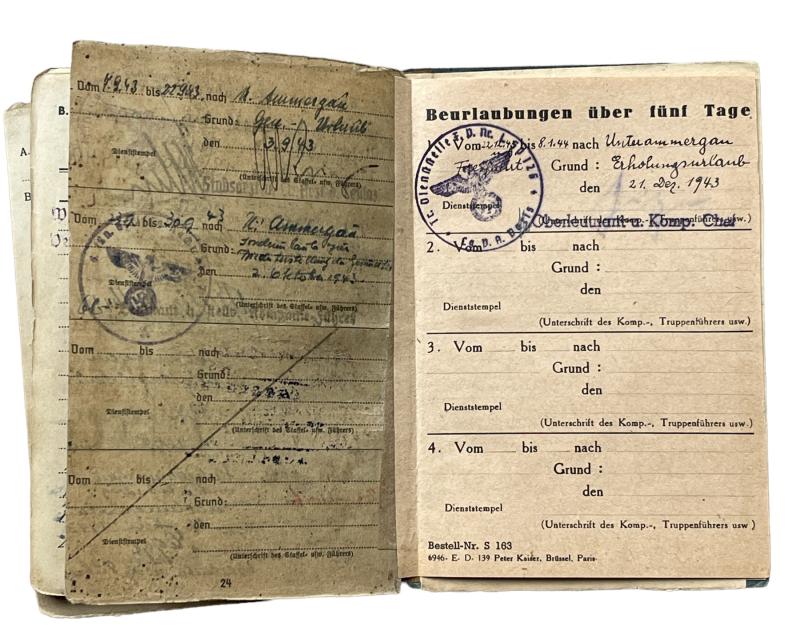 A.
B
B.
Vom 7.9.43 bis 22.9.43 nach U. Ammergau
Grund: Gen.- Urlaub
den 3.9.43
Dienststempel
(Unterschrift des Staffel- usw. Führers)
Vom bis 30.9.43 nach U. Ammergau
Grund: Sonderurlaub
den 2. Oktober 1943
Dienststempel
(Unterschrift des Staffel- usw. Führers)
Kompanie-Führer
Vom bis nach
Grund:
den
Dienststempel
(Unterschrift des Staffel- usw. Führers)
Vom bis nach
Grund:
den
Dienststempel
(Unterschrift des Staffel- usw. Führers)
24
Beurlaubungen über fünf Tage
1. Vom bis 8.1.44 nach Unterammergau
Grund: Erholungsurlaub
den 21. Dez. 1943
Dienststempel
Oberleutnant u. Komp. Chef
(Unterschrift des Komp.-, Truppenführers usw.)
2. Vom bis nach
Grund :
den
Dienststempel
(Unterschrift des Komp.-, Truppenführers usw.)
3. Vom bis nach
Grund :
den
Dienststempel
(Unterschrift des Komp.-, Truppenführers usw.)
4. Vom bis nach
Grund :
den
Dienststempel
(Unterschrift des Komp.-, Truppenführers usw.)
Bestell-Nr. S 163
6946- E- D- 139 Peter Kaiser, Brüssel, Paris-